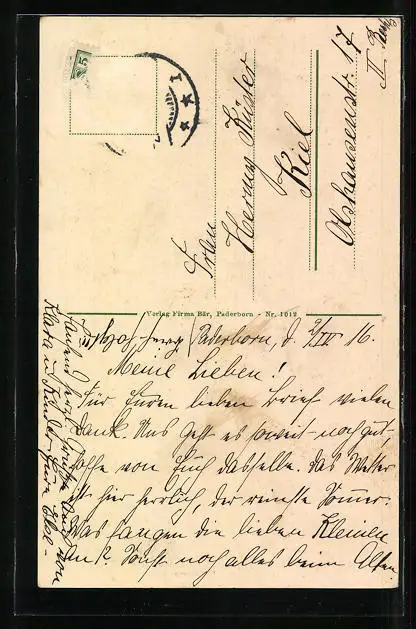 5
1
Frau
Herma Küster
Kiel
Olshausenstr. 17
II
Verlag Firma Bär, Paderborn - Nr. 1012
Paderborn, d. 9/IV 16.
Meine Lieben!
Für Euren lieben Brief vielen
Dank. Uns geht es soweit noch gut,
hoffe von Euch dasselbe. Das Wetter
ist hier herrlich, der reinste Sommer.
Was fangen die lieben Kleinen
an? Sonst noch alles beim Alten.
Tausend herzl. Grüße Euch von
Klara u. Kinder Eure